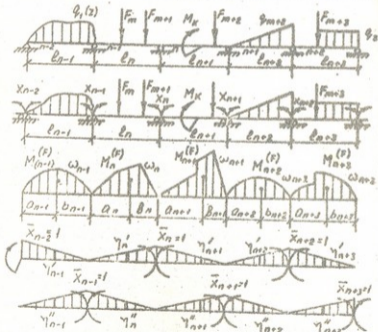 q₁(z) Fₘ Fₘ₊₁ Mₖ Fₘ₊₂ qₘ₊₂ Fₘ₊₃
lₙ₋₁ lₙ lₙ₊₁ lₙ₊₂ lₙ₊₃
xₙ₋₂ xₙ₋₁ Fₘ Fₘ₊₁ xₙ Mₖ xₙ₊₁ Fₘ₊₃
lₙ₋₁ lₙ lₙ₊₁ lₙ₊₂ lₙ₊₃
M₍ₙ₋₁₎⁽ᶠ⁾ ωₙ₋₁ Mₙ⁽ᶠ⁾ ωₙ Mₙ₊₁⁽ᶠ⁾ ωₙ₊₁ Mₙ₊₂⁽ᶠ⁾ ωₙ₊₂ Mₙ₊₃⁽ᶠ⁾
aₙ₋₁ bₙ₋₁ aₙ bₙ aₙ₊₁ bₙ₊₁ aₙ₊₂ bₙ₊₂ aₙ₊₃
x̄ₙ₋₂=1 η'ₙ x̄ₙ=1 x̄ₙ₊₂=1 η'ₙ₊₃
η'ₙ₋₁ x̄ₙ₋₁=1 η'ₙ₊₁ η'ₙ₊₂ x̄ₙ₊₁=1 x̄ₙ₊₃=1
η''ₙ₋₁ η''ₙ η''ₙ₊₁ η''ₙ₊₂ η''ₙ₊₃